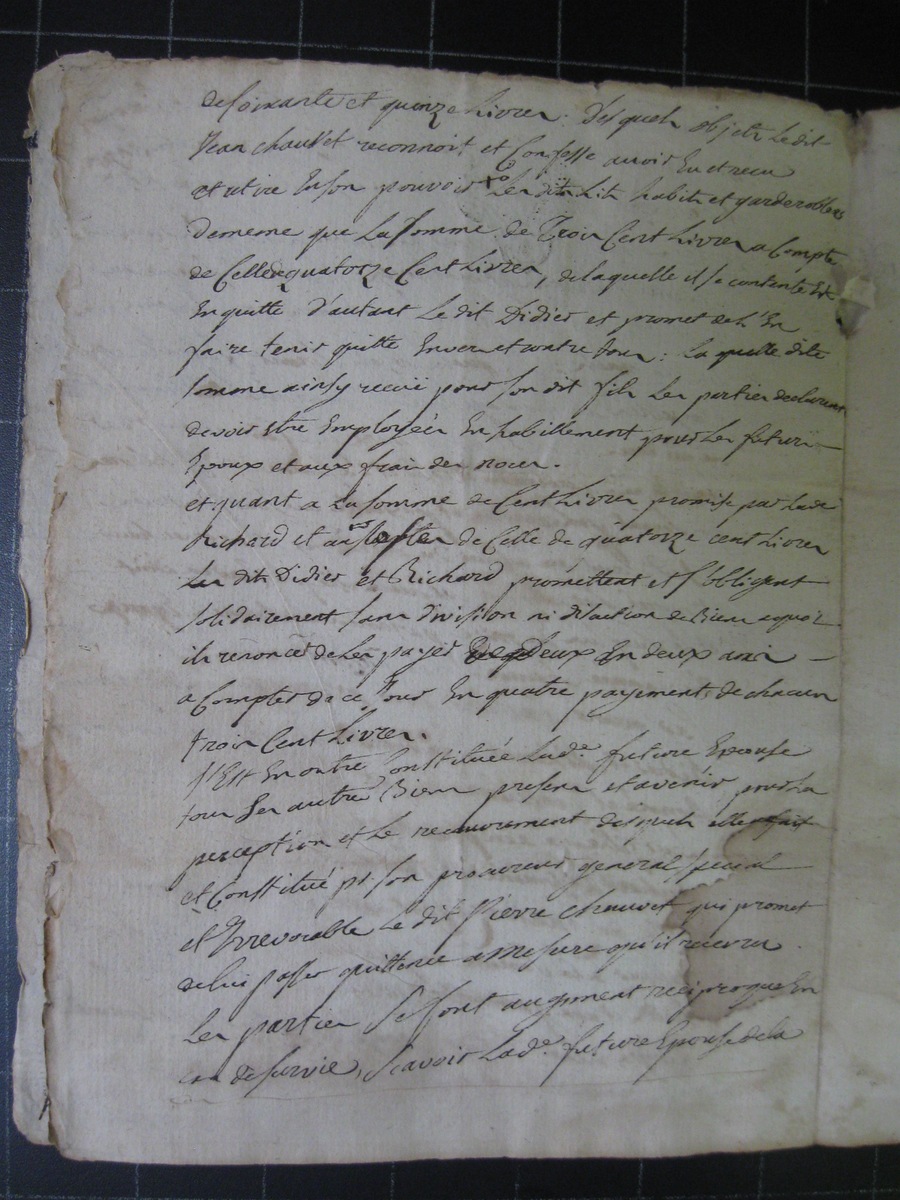 de soixante et quinze Livres. Desquels objets Le dit
Jean chauvet reconnoit et Confesse avoir Eu et recu
et retire En son pouvoir Les dits Lits habits et garderobbes
de meme que La somme de Trois Cent Livres a Compte
de Celle de quatorze Cent Livres, de laquelle il se contente Et
En quitte d'autant Le dit Didier et promet de L'En
faire tenir quitte Envers et contre tous : La quelle dite
somme ainsy recuë pour son dit fils Les parties declarent
devoir Etre Employéer En habillement pour Les futurs
Epoux et aux frais des noces.
et quant a La somme de Cent Livres promise par Lade
Richard et aux restes de Celle de quatorze cent Livres
Les dits Didier et Richard promettent et s'obligent
solidairement sans division ni distaction de Biens a quoi
ils renonces de Les payer Deux En deux ans
a Compter de ce Jour En quatre payements de chacun
trois Cent Livres.
S'Est En outre Constituée Lade. future Epouse
tous Ses autres Biens presens et avenir pour La
perception et Le recouvrement desquels elle a fait
et Constitué pr. son procureur general special
et Irrevocable Le dit Pierre chauvet qui promet
de lui passer quittence a Mesure qu'il recevra
Les parties Se font augment reciproque En
cas de survie, Scavoir Lade. future Epouse de la